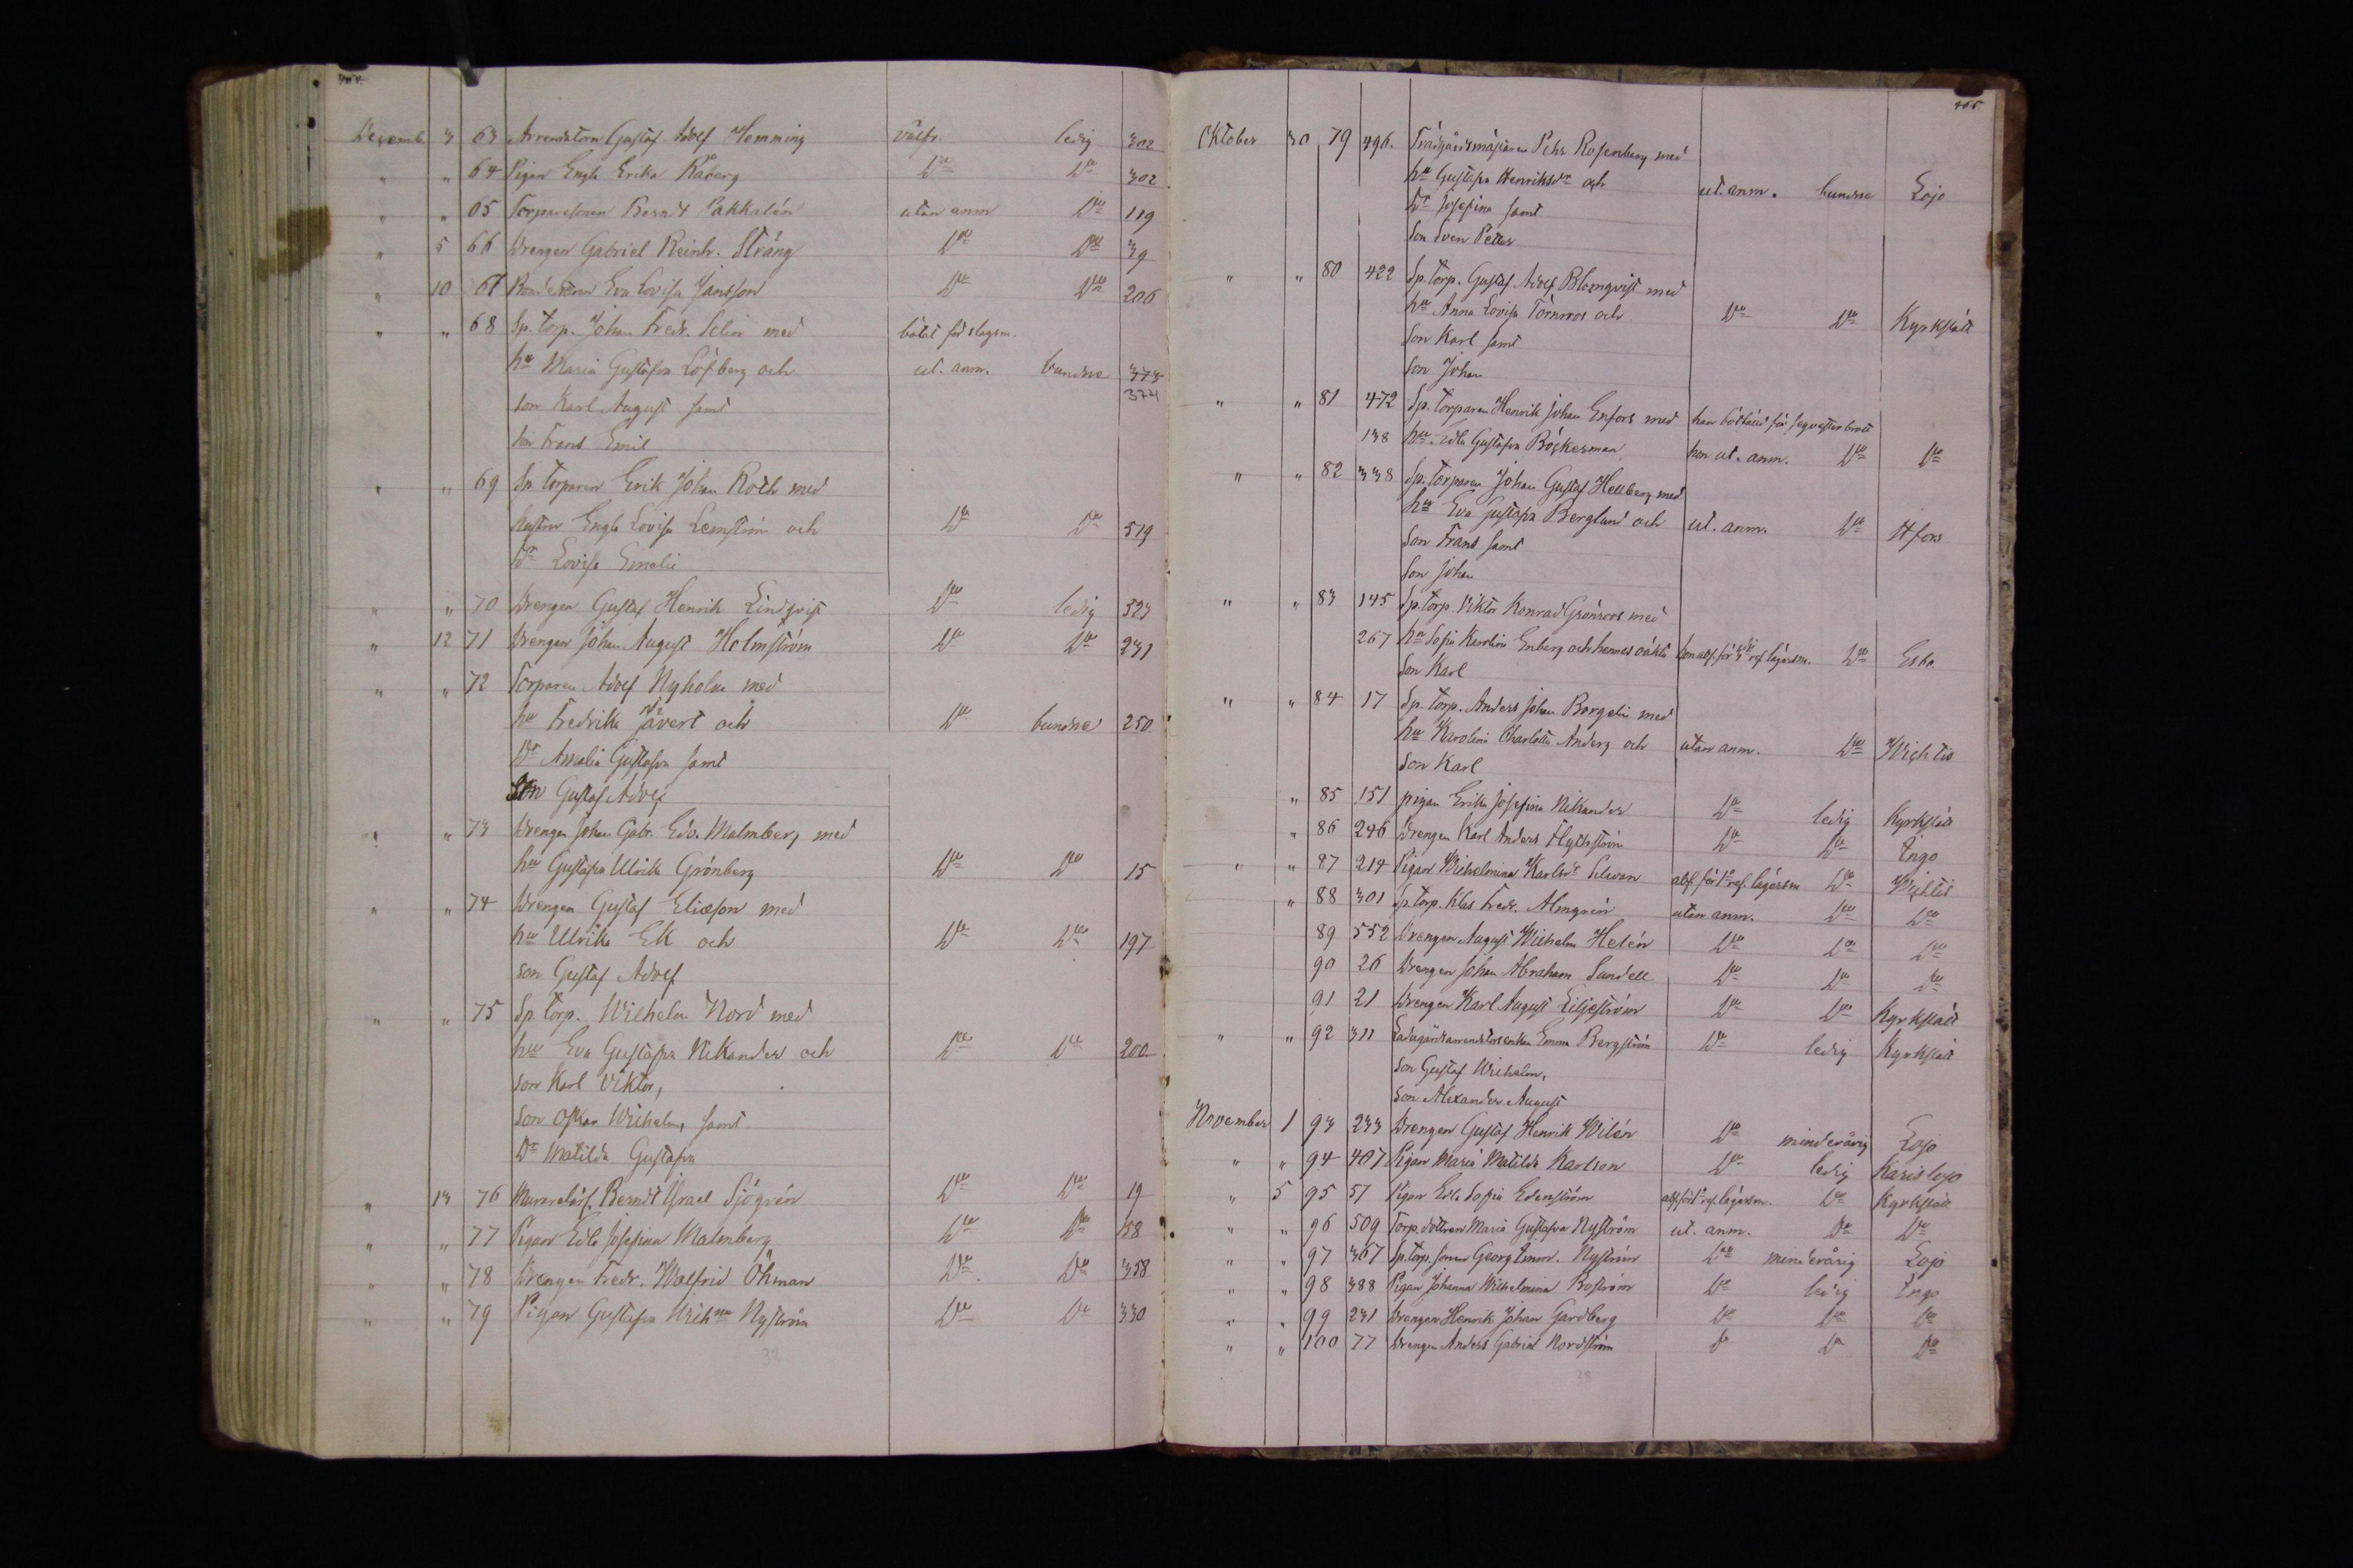 Decemb. 3 63 Arrendatorn Gustaf Adolf Hemming välfr. ledig 302
" " 64 Pigan Engla Erika Råberg Do Do 302
" " 65 Torparesonen Berndt Pakkalén utan anm Do 119
" 5 66 Drengen Gabriel Reinh. Sträng Do Do 39
" 10 67 Eva Lovisa Jansson Do Do 206
" " 68 Sp. torp. Johan Fredr. Selin med bötat för slagsm.
hu Maria Gustafva Löfberg och ut. anm. bundne 373
374
son Karl August samt
son Frans Emil
" " 69 Sp. torparen Erik Johan Roth med
hustrun Engla Lovisa Lemström och Do Do 519
Dr Lovisa Emelie
" " 70 Drengen Gustaf Henrik Lindqvist Do ledig 523
" 12 71 Drengen Johan August Holmström Do Do 231
" " 72 Torparen Adolf Nyholm med
hu Fredrika Jävert och Do bundne 250
Dr Amalia Gustafva samt
Son Gustaf Adolf
" " 73 Drengen Johan Gabr. Edv. Malmberg med
hu Gustafva Ulrika Grönberg Do Do 15
" " 74 Drengen Gustaf Eliæson med
hu Ulrika Ek och Do Do 197
son Gustaf Adolf
" " 75 Sp. torp. Wilhelm Nord med
hu Eva Gustafva Nikander och Do Do 200
son Karl Viktor,
son Oskar Wilhelm, samt
Dr Matilda Gustafva
" 13 76 Berndt Israel Sjögrén Do Do 19
" " 77 Pigan Edla Josefina Malmberg Do Do 158
" " 78 Drengen Fredr. Walfrid Öhman Do Do 358
" " 79 Pigan Gustafva Wilhna Nyström Do Do 330
38
465
Oktober 30 79 496. Trädgårdsmästaren Pehr Rosenberg med
hu Gustafva Henriksdr och ut. anm. bundne Lojo
Dr Josefina samt
Son Sven Petter
" " 80 422 Sp. torp. Gustaf Adolf Blomqvist med
hu Anna Lovisa Törnroos och Do Do Kyrkslätt
Son Karl samt
Son Johan
" " 81 472 Sp. torparen Henrik Johan Enfors med han bötfälld för
138 hu Edla Gustafva Böckerman hon ut. anm. Do Do
" " 82 338 Sp. torparen Johan Gustaf Hellberg med
hu Eva Gustafva Berglund och ut. anm. Do Hfors
Son Frans samt
Son Johan
" " 83 145 Sp. torp. Viktor Konrad Grönroos med
267 hu Sofia Karolina Enberg och hennes oäkta hon abs. för 3dje ref. lägersm. Do Esbo
Son Karl
" " 84 17 Sp. torp. Anders Johan Borgelin med
hu Karolina Charlotta Anderg och utan anm. Do Wichtis
Son Karl
" 85 151 pigan Erika Josefina Nikander Do ledig Kyrkslätt
" 86 246 Drengen Karl Anders Flythström Do Do Ingo
" " 87 214 Pigan Wilhelmina Karlsdr abs. för 1a ref. lägersm Do Wichtis
" 88 301 Sp. torp. Klas Fredr. Almgrén utan anm. Do Do
89 552 Drengen August Wilhelm Helén Do Do Do
90 26 Drengen Johan Abraham Sundell Do Do Do
91 21 Drengen Karl August Liljeström Do Do Kyrkslätt
" " 92 311 Ladugårdsarrendatorsenkan Emma Bergström Do ledig Kyrkslätt
Son Gustaf Wilhelm,
Son Alexander August
November 1 93 233 Drengen Gustaf Henrik Wilén Do minderårig Lojo
" " 94 407 Pigan Maria Matilda Karlson Do ledig Karislojo
" 5 95 57 Pigan Edla Sofia Edenström abs. för 1a ref. lägersm. Do Kyrkslätt
" " 96 509 Torp. dottren Maria Gustafva Nyström ut. anm. Do Do
" " 97 367 Sp. torp. sonen Georg Emm. Nyström Do minderårig Lojo
" " 98 388 Pigan Johanna Wilhelmina Boström Do ledig Ingo
" " 99 231 Drengen Henrik Johan Gardberg Do Do Do
" " 100 77 Drengen Anders Gabriel Nordström Do Do Do
38